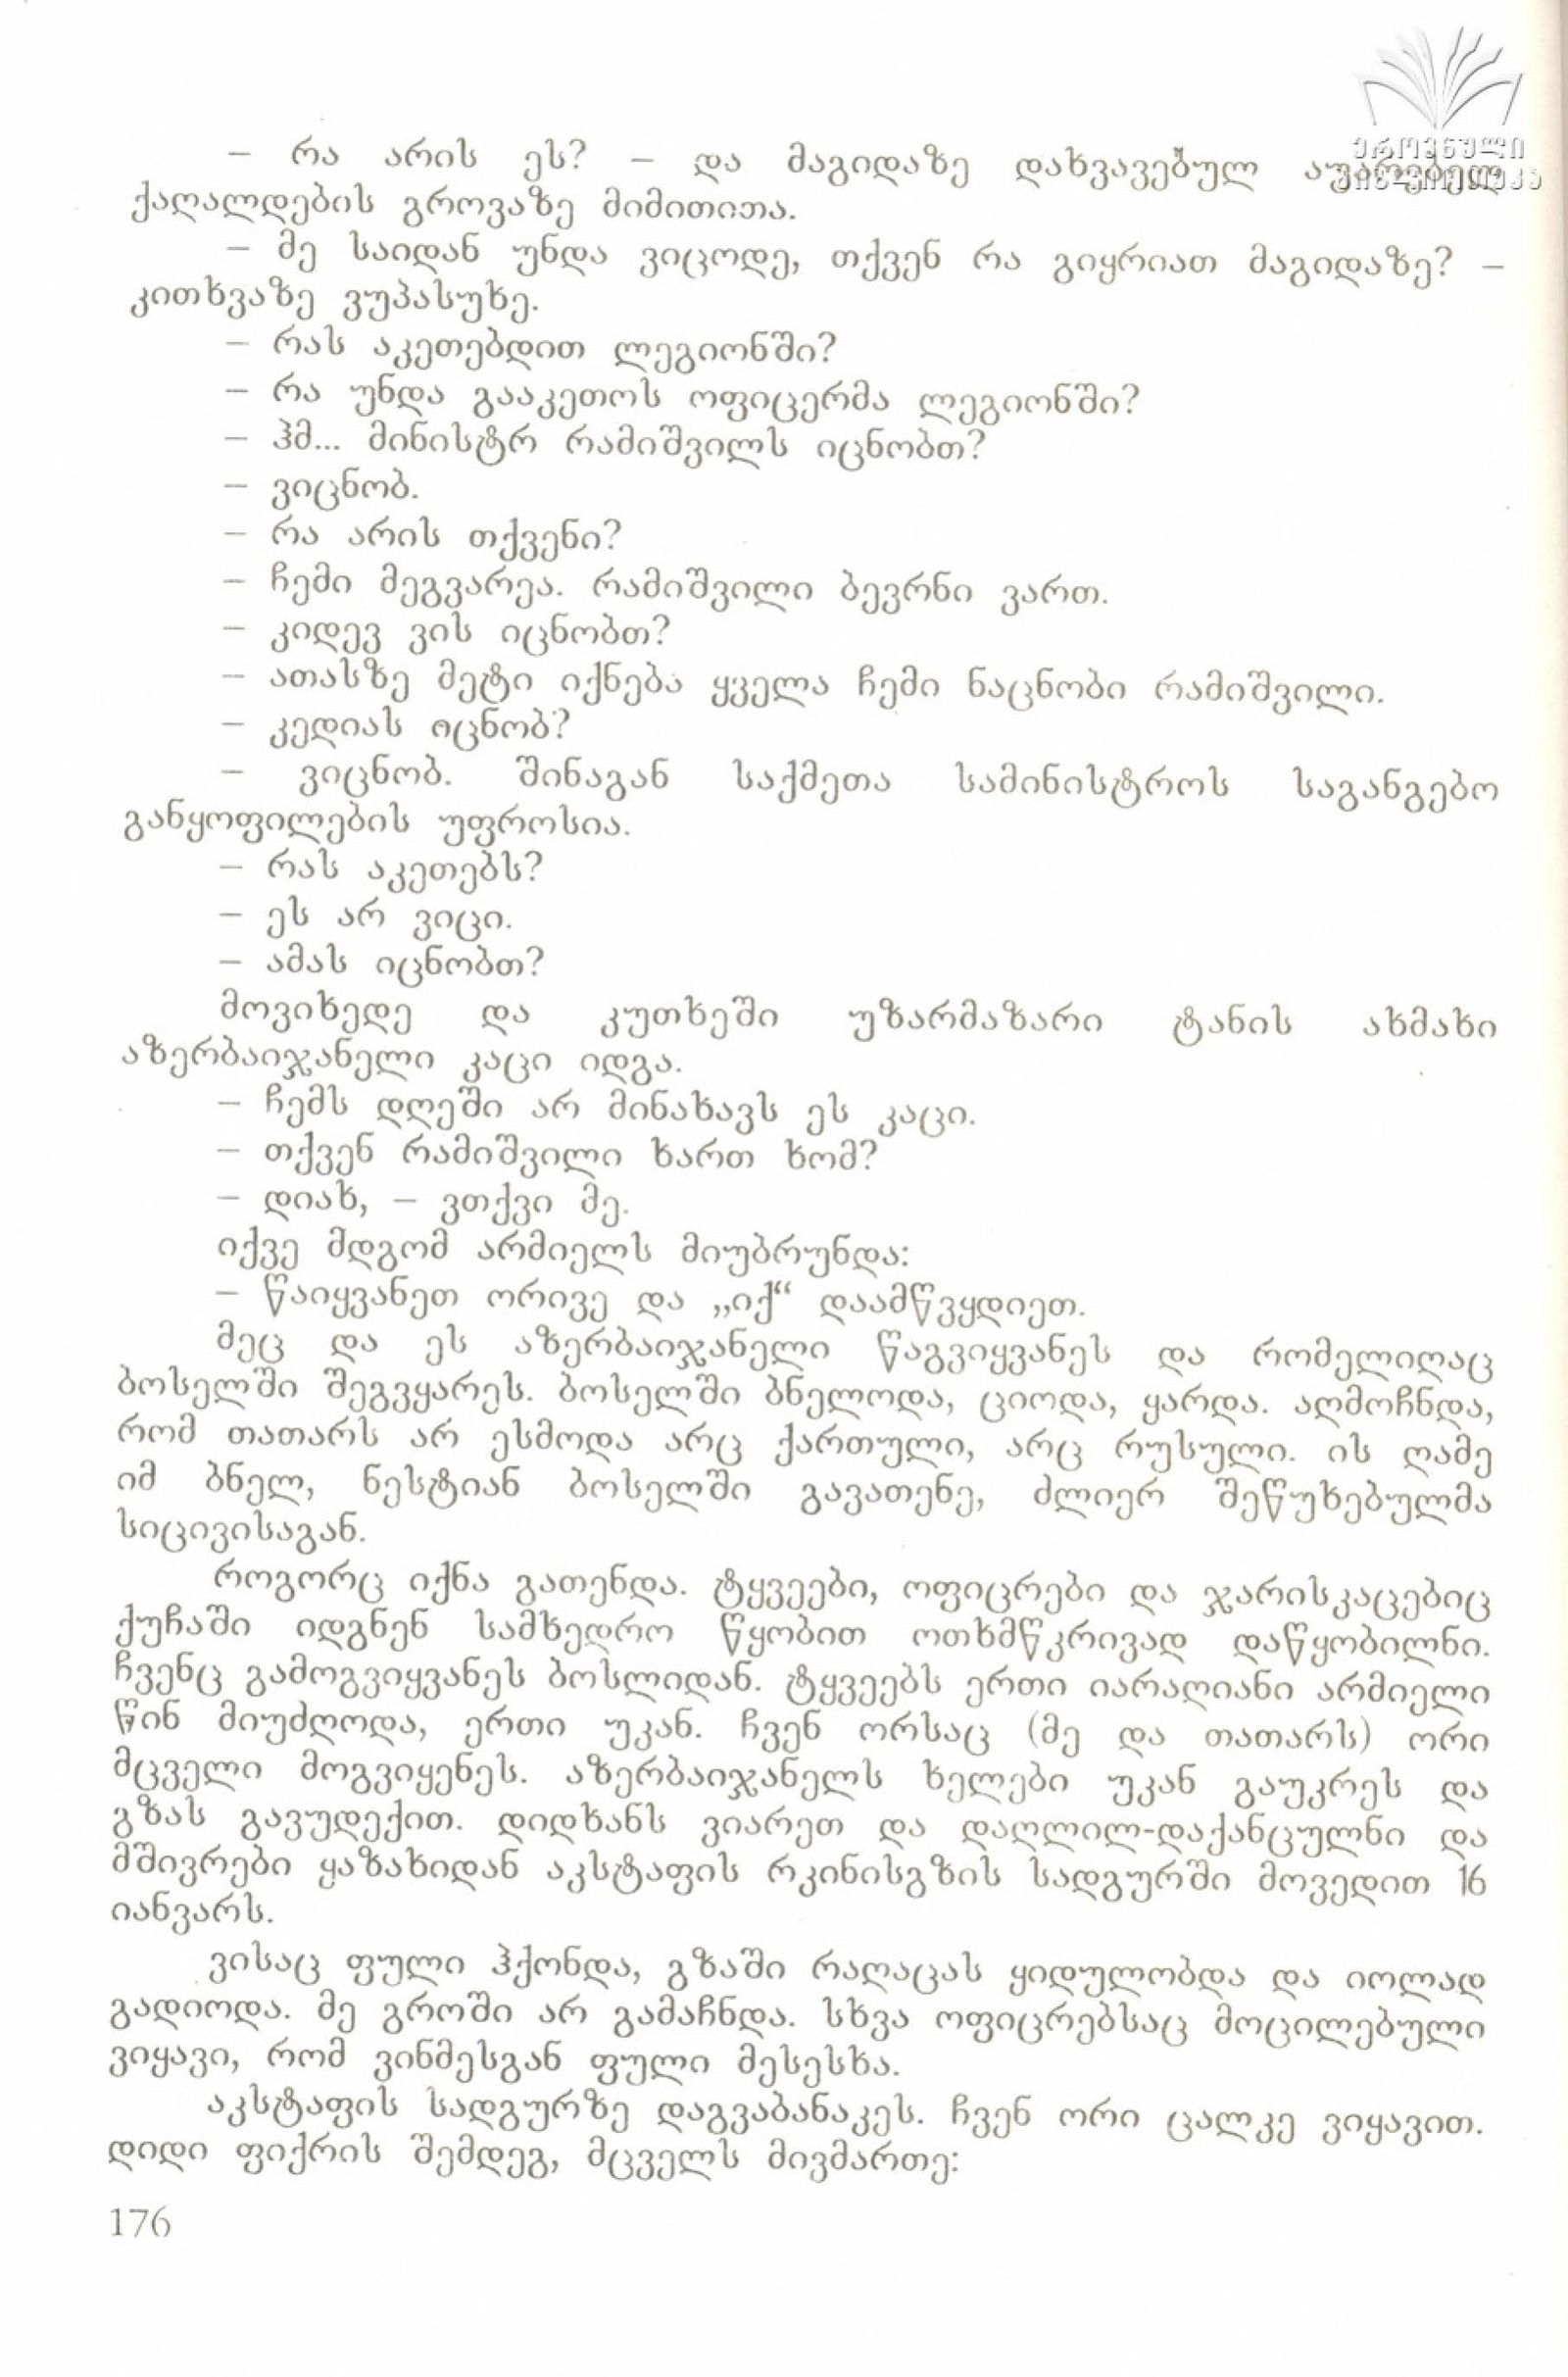 ეროვნული
ბიბლიოთეკა
– რა არის ეს? – და მაგიდაზე დახვავებულ აუარებელ
ქაღალდების გროვაზე მიმითითა.
– მე საიდან უნდა ვიცოდე, თქვენ რა გიყრიათ მაგიდაზე? –
კითხვაზე ვუპასუხე.
– რას აკეთებდით ლეგიონში?
– რა უნდა გააკეთოს ოფიცერმა ლეგიონში?
– ჰმ... მინისტრ რამიშვილს იცნობთ?
– ვიცნობ.
– რა არის თქვენი?
– ჩემი მეგვარეა. რამიშვილი ბევრნი ვართ.
– კიდევ ვის იცნობთ?
– ათასზე მეტი იქნება ყველა ჩემი ნაცნობი რამიშვილი.
– კედიას იცნობ?
– ვიცნობ. შინაგან საქმეთა სამინისტროს საგანგებო
განყოფილების უფროსია.
– რას აკეთებს?
– ეს არ ვიცი.
– ამას იცნობთ?
მოვიხედე და კუთხეში უზარმაზარი ტანის ახმახი
აზერბაიჯანელი კაცი იდგა.
– ჩემს დღეში არ მინახავს ეს კაცი.
– თქვენ რამიშვილი ხართ ხომ?
– დიახ, – ვთქვი მე.
იქვე მდგომ არმიელს მიუბრუნდა:
– წაიყვანეთ ორივე და „იქ“ დაამწვყდიეთ.
მეც და ეს აზერბაიჯანელი წაგვიყვანეს და რომელიღაც
ბოსელში შეგვყარეს. ბოსელში ბნელოდა, ციოდა, ყარდა. აღმოჩნდა,
რომ თათარს არ ესმოდა არც ქართული, არც რუსული. ის ღამე
იმ ბნელ, ნესტიან ბოსელში გავათენე, ძლიერ შეწუხებულმა
სიცივისაგან.
როგორც იქნა გათენდა. ტყვეები, ოფიცრები და ჯარისკაცებიც
ქუჩაში იდგნენ სამხედრო წყობით ოთხმწკრივად დაწყობილნი.
ჩვენც გამოგვიყვანეს ბოსლიდან. ტყვეებს ერთი იარაღიანი არმიელი
წინ მიუძღოდა, ერთი უკან. ჩვენ ორსაც (მე და თათარს) ორი
მცველი მოგვიყენეს. აზერბაიჯანელს ხელები უკან გაუკრეს და
გზას გავუდექით. დიდხანს ვიარეთ და დაღლილ-დაქანცულნი და
მშივრები ყაზახიდან აკსტაფის რკინისგზის სადგურში მოვედით 16
იანვარს.
ვისაც ფული ჰქონდა, გზაში რაღაცას ყიდულობდა და იოლად
გადიოდა. მე გროში არ გამაჩნდა. სხვა ოფიცრებსაც მოცილებული
ვიყავი, რომ ვინმესგან ფული მესესხა.
აკსტაფის სადგურზე დაგვაბანაკეს. ჩვენ ორი ცალკე ვიყავით.
დიდი ფიქრის შემდეგ, მცველს მივმართე:
176